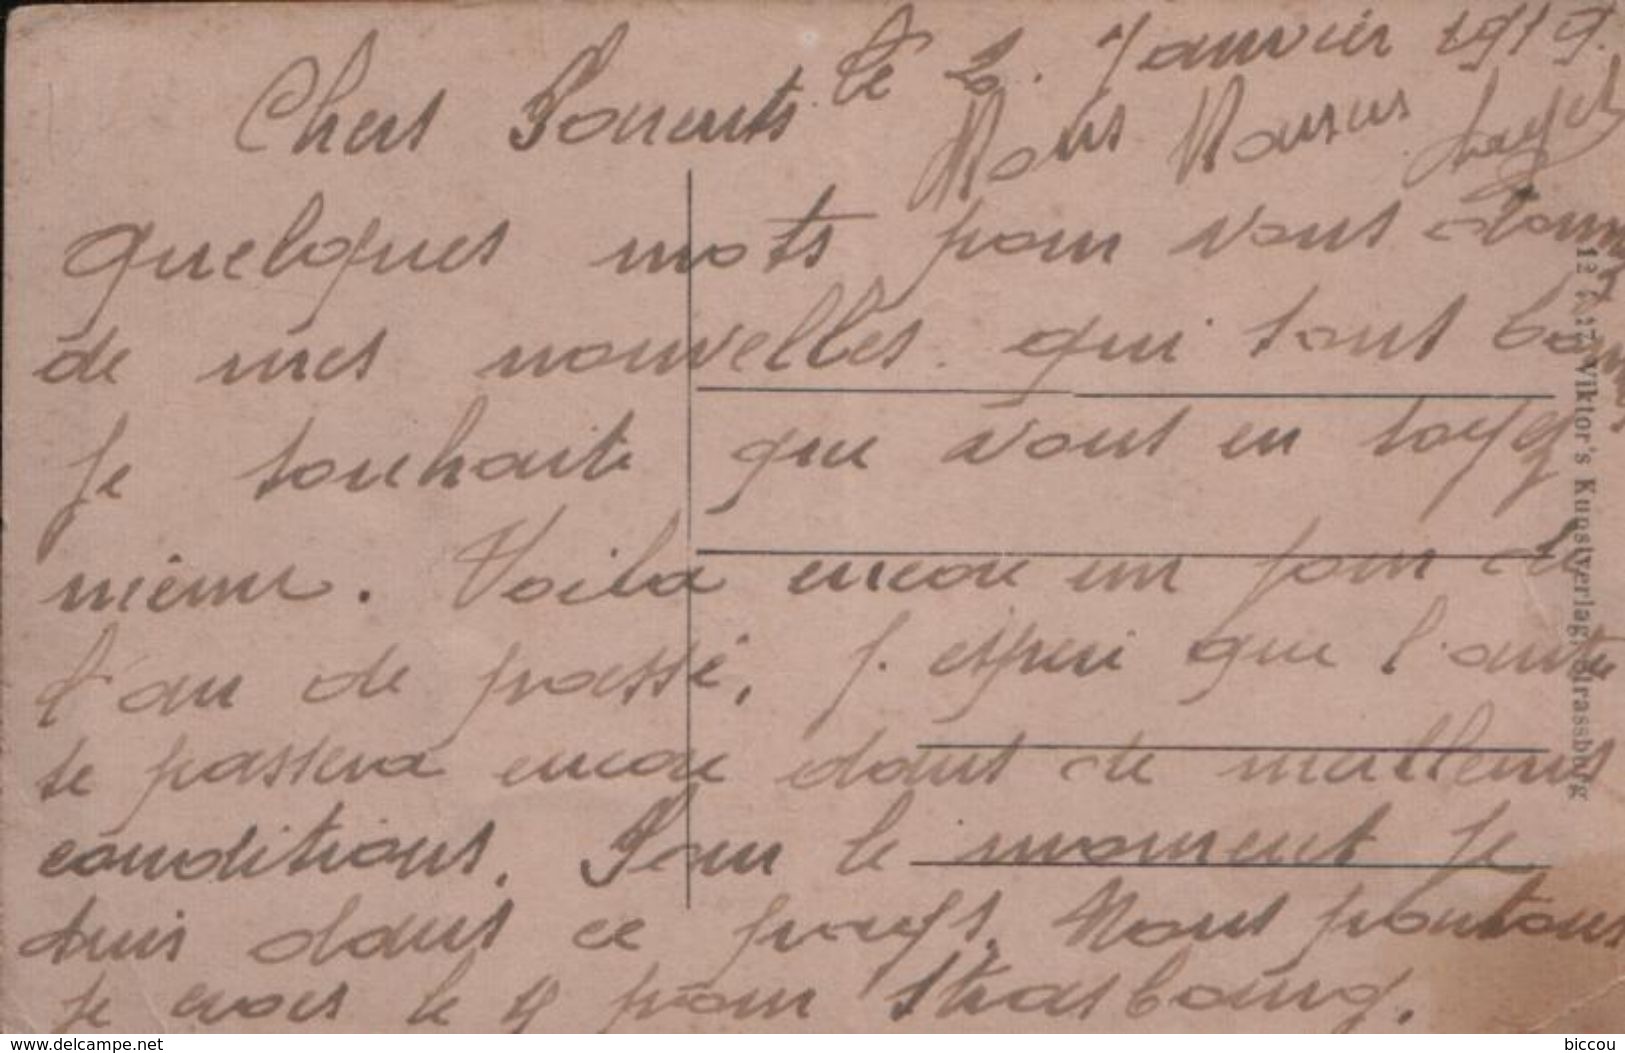 le 2. Janvier 1919.
Chers Parents
quelques mots pour vous donner
de mes nouvelles qui sont bonnes
Je souhaite que vous en soyez
même. Voila encore un jour de
l'an de passé, J. esperè que l'autre
se passera encore dans de meilleures
conditions. Pour le moment je
suis dans ce pays. Nous partons
je crois le 4 pour Strasbourg.
Viktor's Kunstverlag, Strassburg
www.delcampe.net
biccou